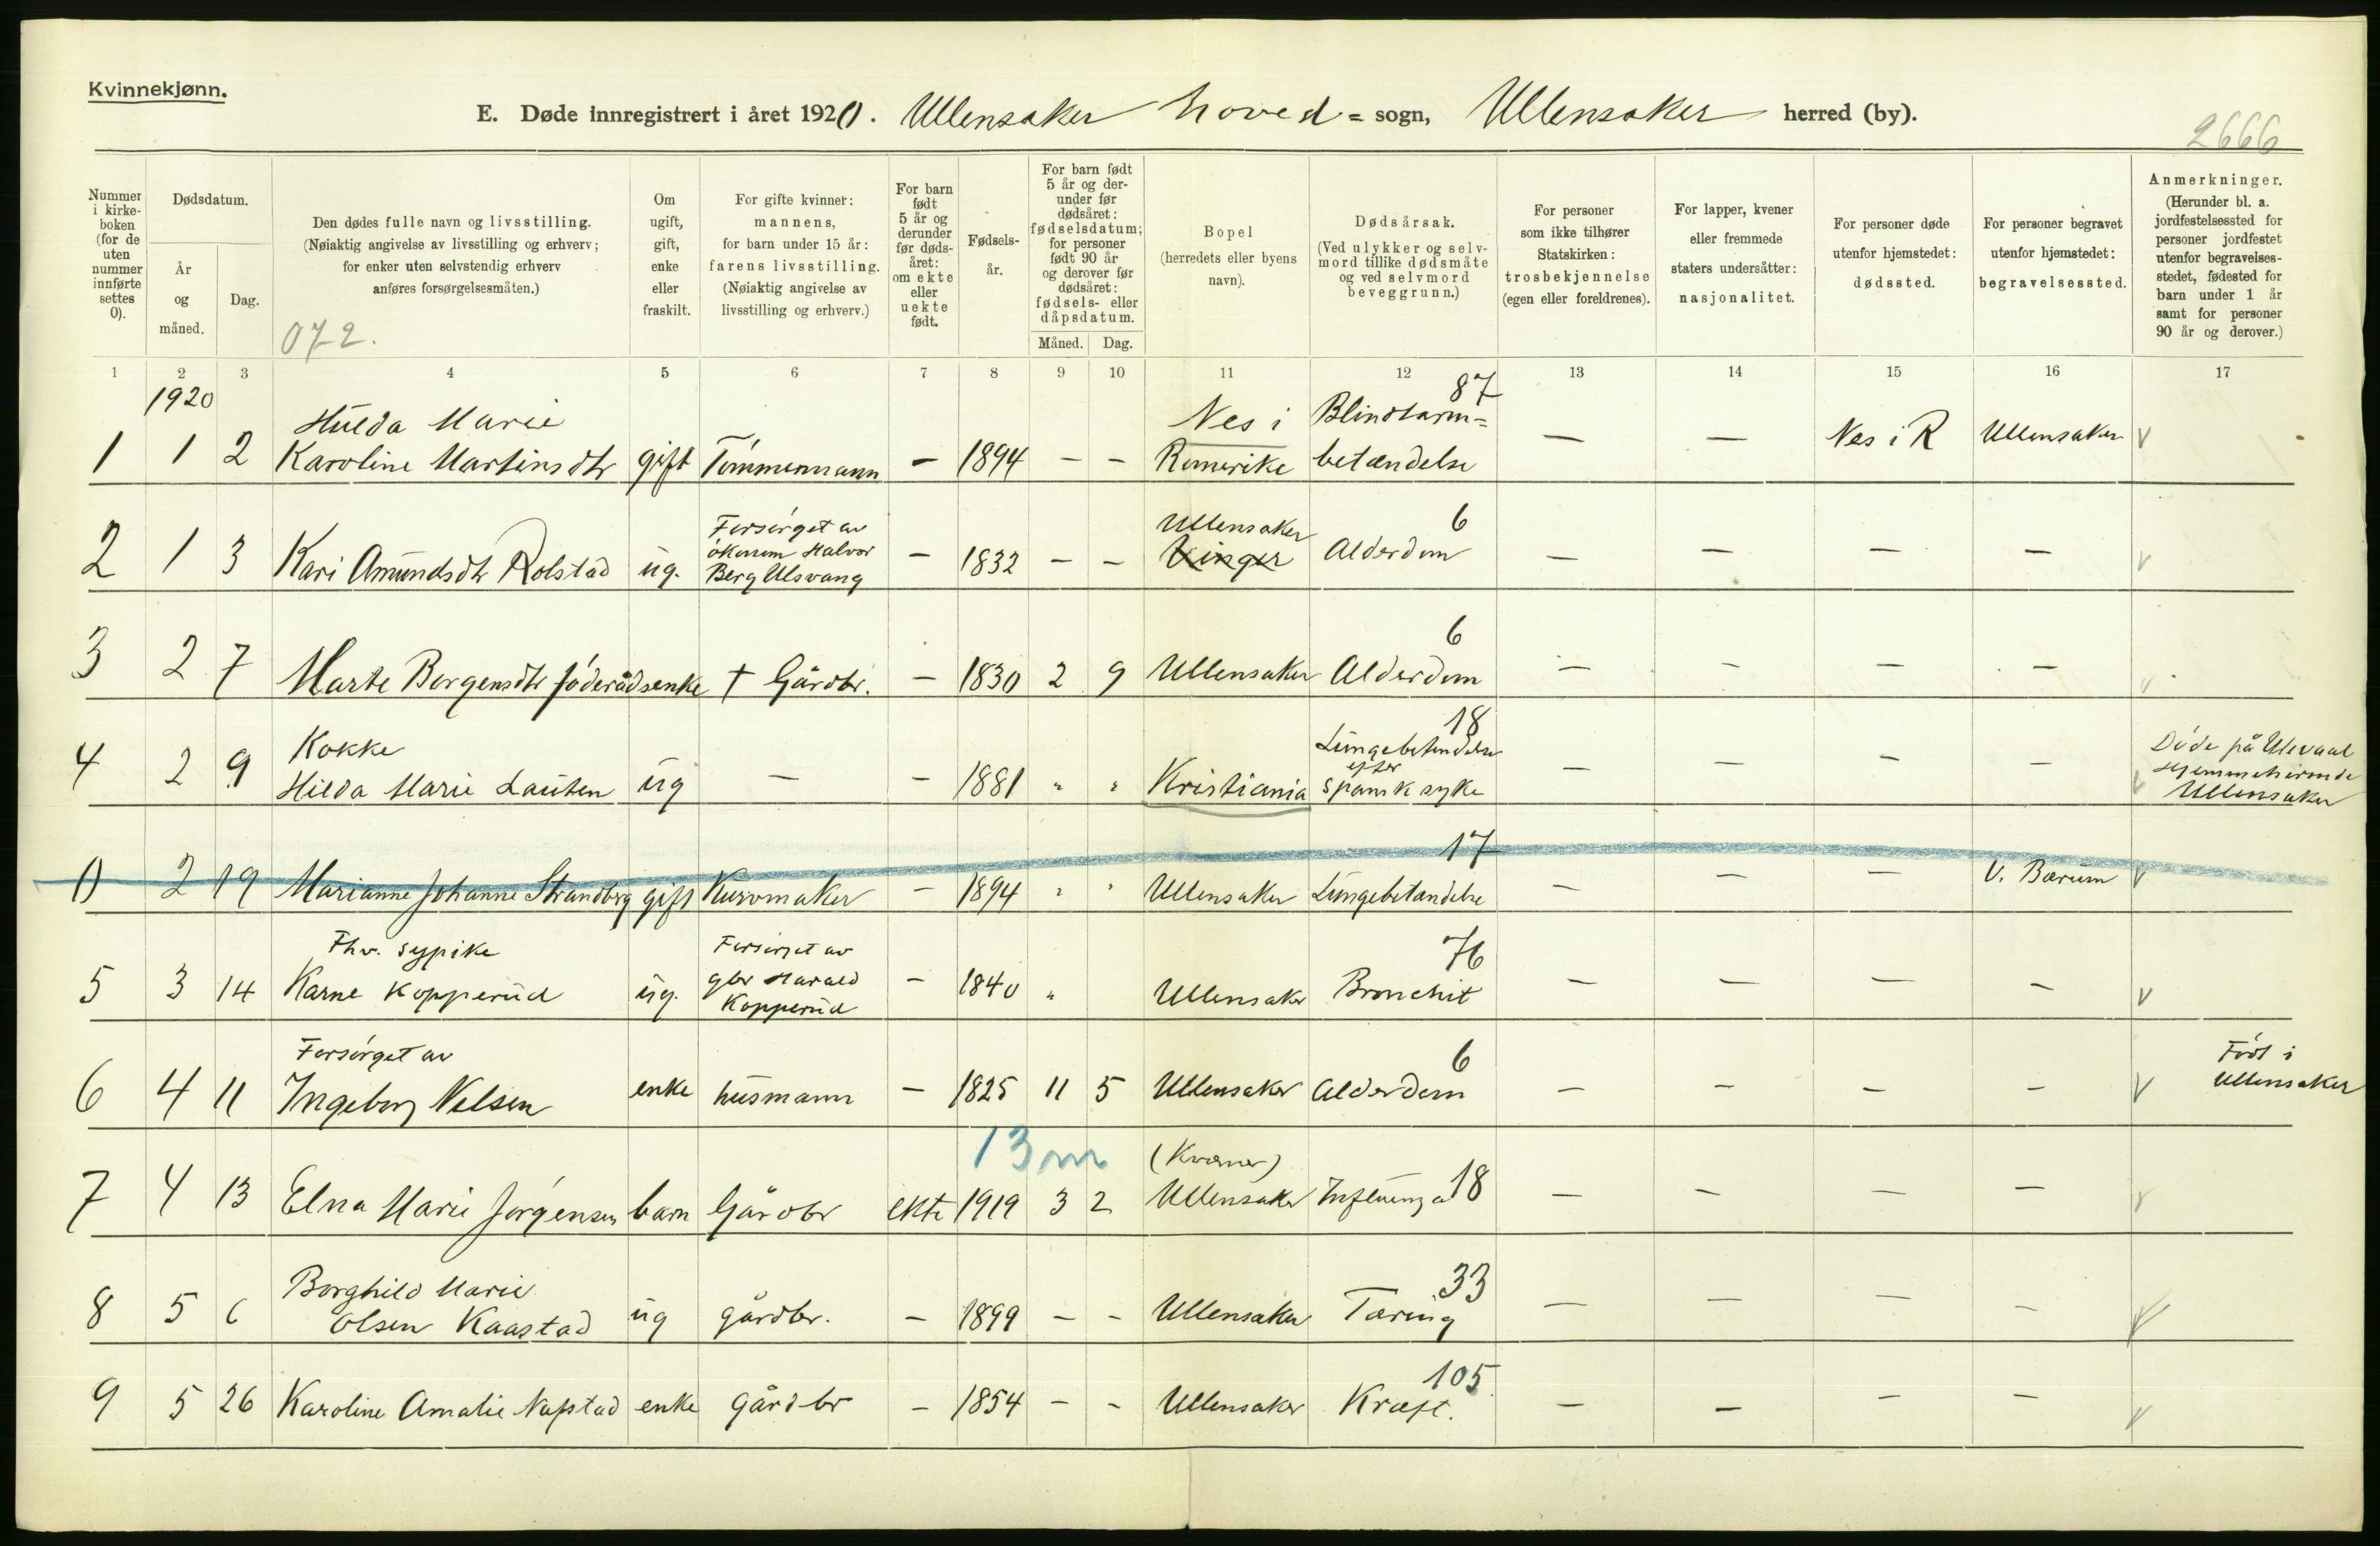 Kvinnekjønn.
E. Døde innregistrert i året 1920. Ullensaker hoved = sogn, Ullensaker herred (by).
2666
Nummer i kirke- boken (for de uten nummer innførte settes 0).
Dødsdatum.
År og måned.
Dag.
Den dødes fulle navn og livsstilling.
(Nøiaktig angivelse av livsstilling og erhverv;
for enker uten selvstendig erhverv
anføres forsørgelsesmåten.)
072.
Om ugift, gift, enke eller fraskilt.
For gifte kvinner:
mannens,
for barn under 15 år:
farens livsstilling.
(Nøiaktig angivelse av
livsstilling og erhverv.)
For barn født 5 år og derunder før døds- året: om ekte eller uekte født.
Fødsels- år.
For barn født 5 år og der- under før dødsåret: fødselsdatum; for personer født 90 år og derover før dødsåret: fødsels- eller dåpsdatum.
Måned. Dag.
Bopel
(herredets eller byens
navn).
Dødsårsak.
(Ved ulykker og selv-
mord tillike dødsmåte
og ved selvmord
beveggrunn.)
For personer
som ikke tilhører
Statskirken:
trosbekjennelse
(egen eller foreldrenes).
For lapper, kvener
eller fremmede
staters undersåtter:
nasjonalitet.
For personer døde
utenfor hjemstedet:
dødssted.
For personer begravet
utenfor hjemstedet:
begravelsessted.
Anmerkninger.
(Herunder bl. a.
jordfestelsessted for
personer jordfestet
utenfor begravelses-
stedet, fødested for
barn under 1 år
samt for personer
90 år og derover.)
1 2 3 4 5 6 7 8 9 10 11 12 13 14 15 16 17
1920
Hulda Marie Nes i Blindtarm= 87
1 1 2 Karoline Martinsdtr gift Tømmermann – 1894 – – Romerike betændelse – – Nes i R Ullensaker v
Forsørget av Ullensaker 6
økonom Halvor
2 1 3 Kari Amundsdtr Rolstad ug. Berg Ulsvang – 1832 – – Vinger Alderdom – – – – v
6
3 2 7 Marte Borgensdtr föderådsenke † Gårdbr. – 1830 2 9 Ullensaker Alderdom – – – – v
18
Kokke Lungebetendelse Døde på Ulevaal
efter Hjemmehørende
4 2 9 Hilda Marie Lauten ug – – 1881 " " Kristiania spansk syke – – – – v Ullensaker
17
0 2 19 Marianne Johanne Strandbrg gift Kurvmaker – 1894 " " Ullensaker Lungebetandelse – – – V. Bærum v
Fhv. sypike Forsørget av 76
gbr Harald
5 3 14 Karne Kopperud ug. Kopperud – 1840 " Ullensaker Bronchit – – – – v
Forsørget av 6 Född i
6 4 11 Ingeborg Nelsen enke husmann – 1825 11 5 Ullensaker Alderdom – – – – v Ullensaker
13 m (Kværner)
7 4 13 Elna Marie Jørgensen barn Gårdbr ekte 1919 3 2 Ullensaker Influenza 18 – – – – v
Borghild Marie 33
8 5 6 Olsen Kaastad ug gårdbr. – 1899 – – Ullensaker Tæring – – – – v
105
9 5 26 Karoline Amalie Napstad enke gårdbr – 1854 – – Ullensaker Kræft. – – – – v